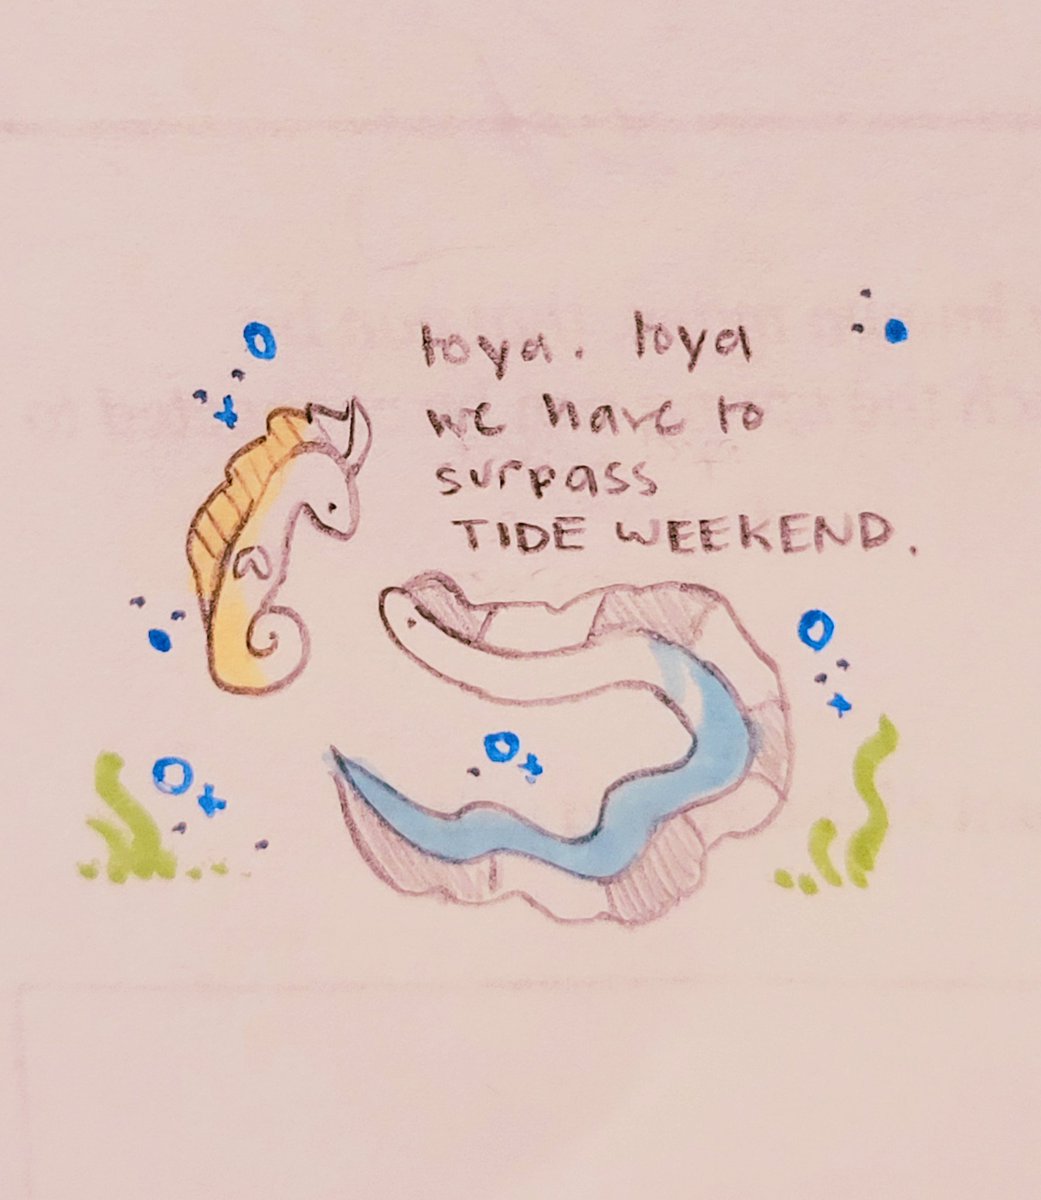 toya. toya
we have to
surpass
TIDE WEEKEND.